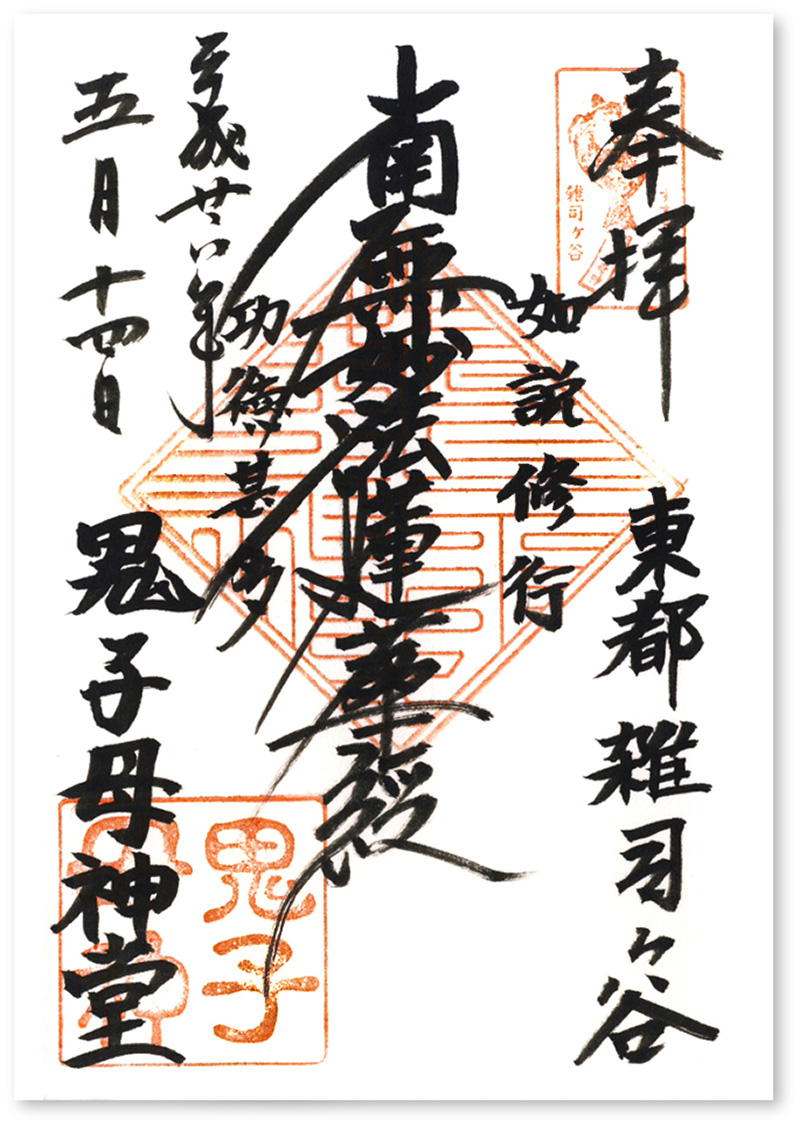 奉拝
東都雑司ヶ谷
雑司ヶ谷
如説修行
南無妙法蓮華経
功徳甚多
平成廿八年
五月十四日
鬼子母神堂
鬼子
母神